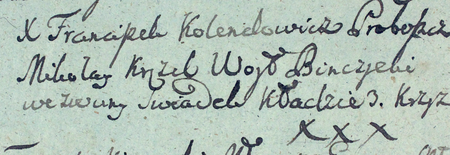 X Franciszek Kolendowicz Proboszcz
Mikołay Krzel Woyt Binczycki
wezwany Swiadek Kładzie 3. Krzyż
X X X